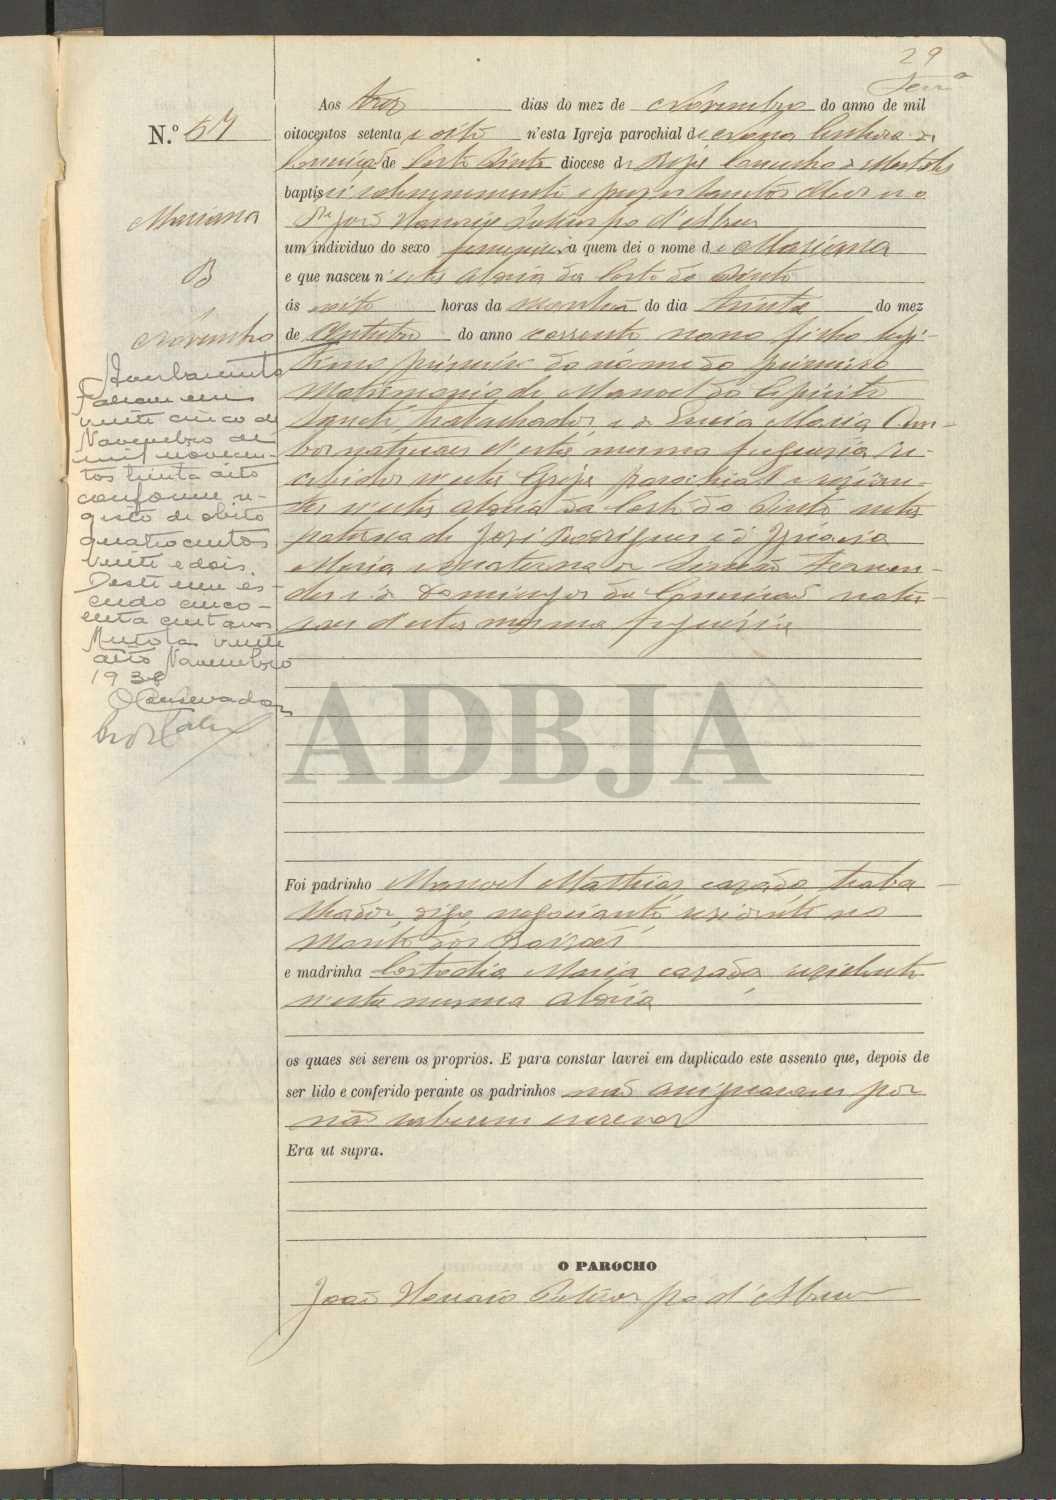 29
N.º 57
Marianna
B
Novembro
Aos tres dias do mez de Novembro do anno de mil
oitocentos setenta e oito n'esta Igreja parochial de Nossa Senhora da
Conceição de Corte Pinto diocese de Beja Concelho de Mertola
baptisei solemnemente e puz os Santos Oleos
um individuo do sexo femenino a quem dei o nome de Marianna
e que nasceu n'esta Aldeia da Corte do Pinto
ás oito horas da manhã do dia trinta do mez
de Outubro do anno corrente filho legi-
timo primeiro do nome do primeiro
Matrimonio de Manoel do Espirito
Santo, trabalhador, e de Luzia Maria Am-
bos naturaes d'esta mesma freguezia re-
cebidos n'esta Igreja parochial e reziden-
tes n'esta Aldeia da Corte do Pinto neta
paterna de José Rodrigues e de Ignacia
Maria e materna de Fernan-
des e de Domingas da Conceição natu-
raes d'esta mesma freguezia
Averbamento
Faleceu em
vinte cinco de
Novembro de
mil novecen-
tos trinta oito
conforme re-
gisto de obito
quatrocentos
vinte e dois.
Desti um es-
cudo cinco-
enta centavos
Mertola vinte
oito Novembro
1938
O Conservador
ADBJA
Foi padrinho Manoel Mathias cazado traba-
lhador, digo, negociante, rezidente no
Monte dos
e madrinha Custodia Maria cazada, rezidente
n'esta mesma Aldeia
os quaes sei serem os proprios. E para constar lavrei em duplicado este assento que, depois de
ser lido e conferido perante os padrinhos não assignaram por
não saberem escrever
Era ut supra.
O PAROCHO
João d'Abreu